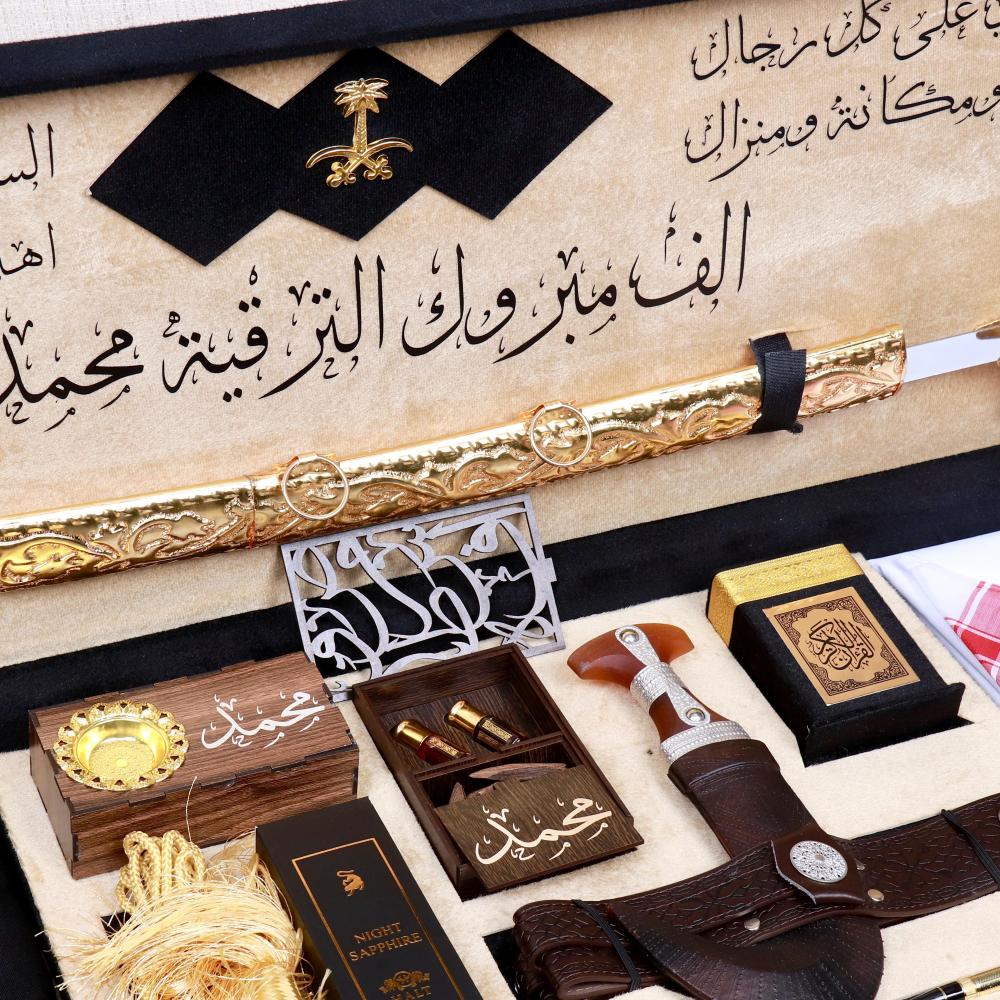 على كل رجال
ومكانة ومنزال
الف مبروك الترقية محمد
محمد
محمد
القرآن الكريم
NIGHT
SAPPHIRE